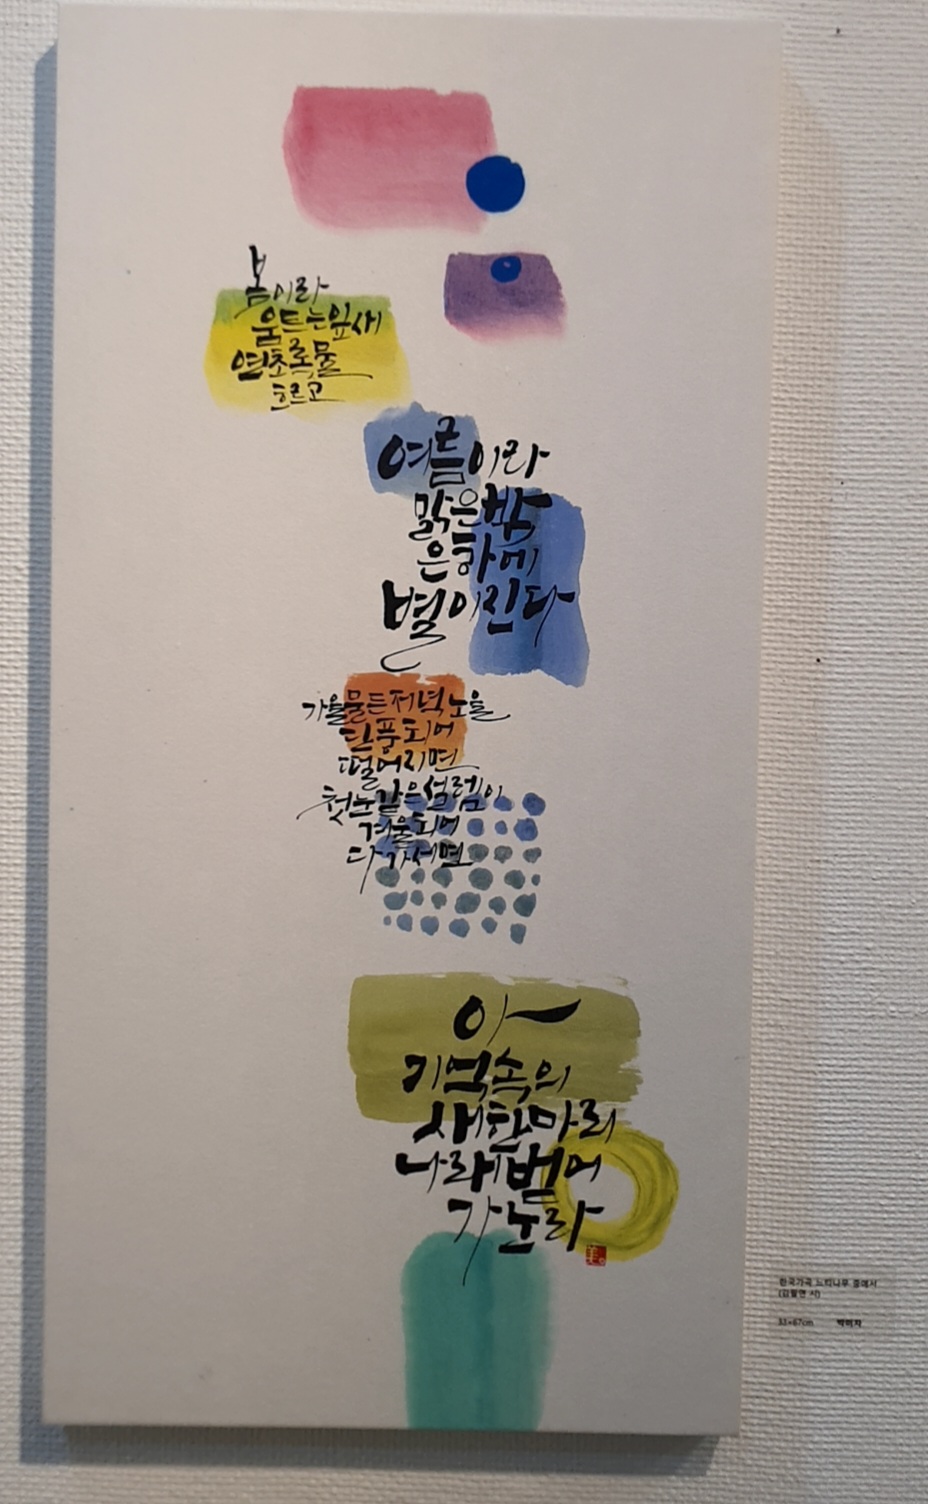 봄이라
움트는잎새
연초록물
흐르고
여름이라
맑은밤
은하에
별이진다
가을물든저녁노을
단풍되어
떨어지면
첫눈같은설렘이
겨울되어
다가서면
아
기억속의
새한마리
나래벌어
가눈라
美
한국가곡 느티나무 중에서
(김필연 시)
33×67cm 박미자